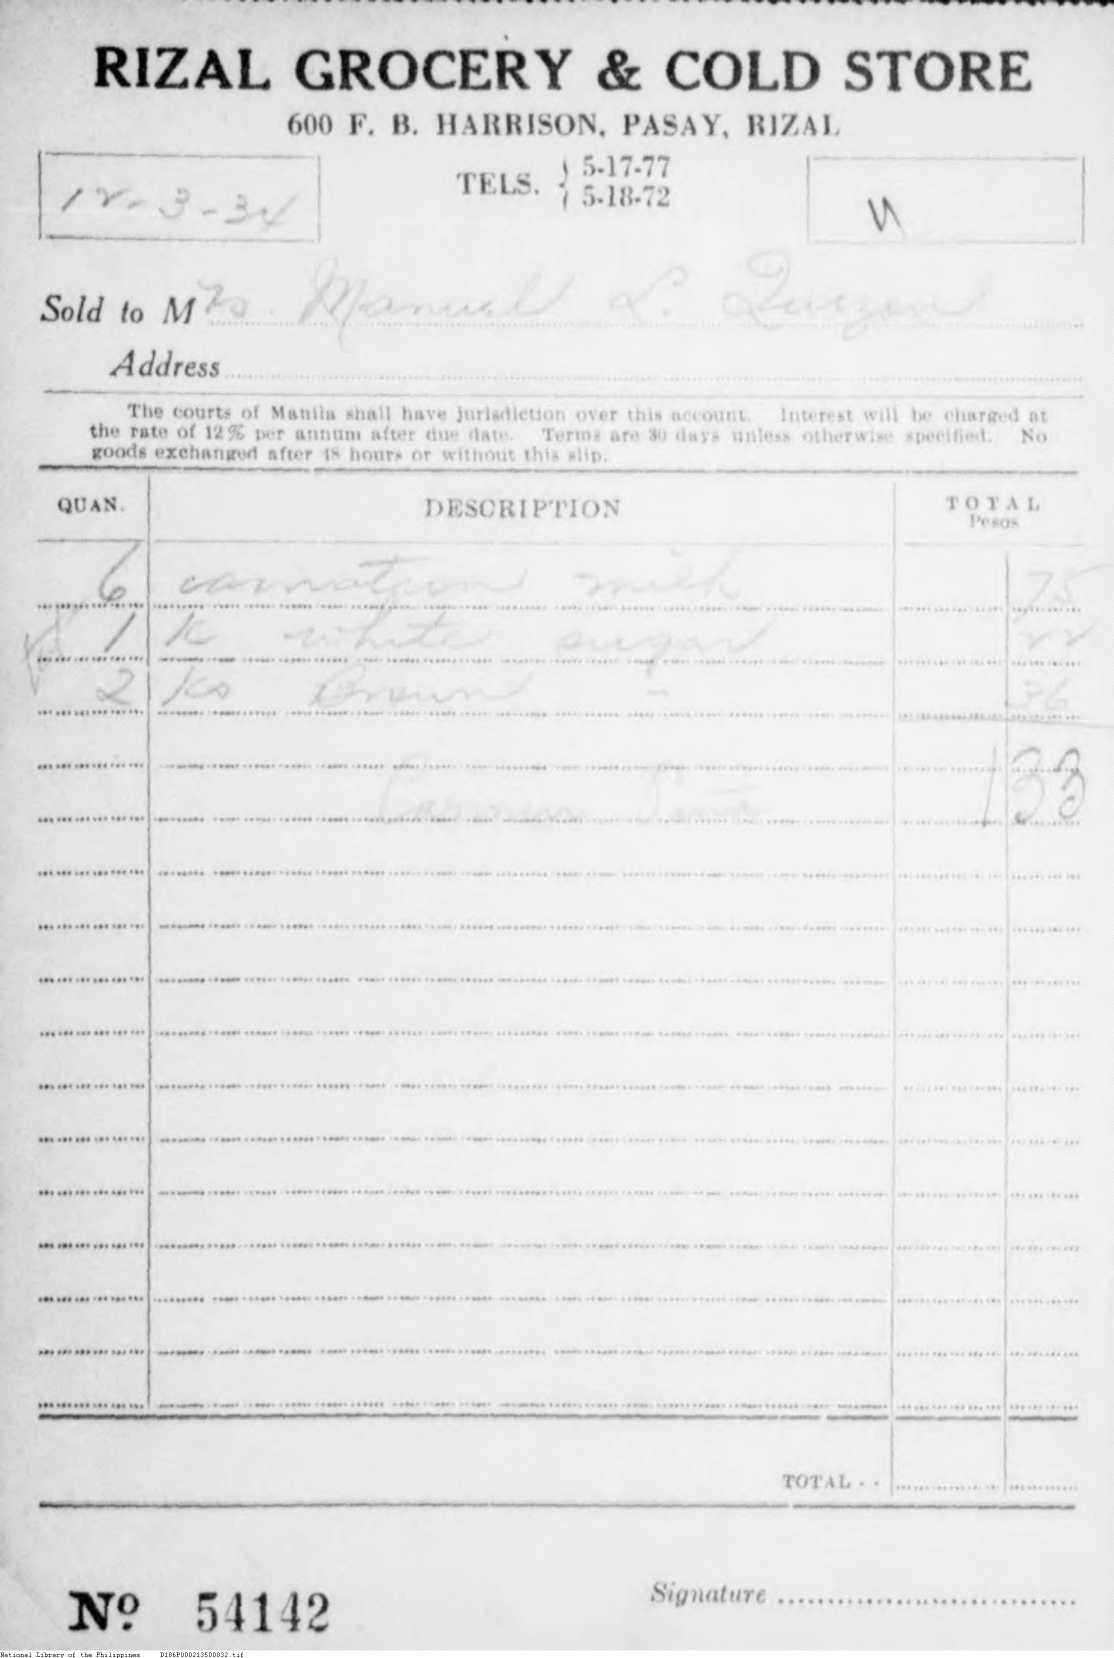 RIZAL GROCERY & COLD STORE
600 F. B. HARRISON, PASAY, RIZAL
TELS. { 5-17-77
5-18-72
12-3-34
Sold to Mrs. Manuel L. Quezon
Address
The courts of Manila shall have jurisdiction over this account. Interest will be charged at
the rate of 12% per annum after due date. Terms are 30 days unless otherwise specified. No
goods exchanged after 48 hours or without this slip.
QUAN. DESCRIPTION TOTAL
Pesos
6 carnation milk 75
1 K white sugar 22
2 Ks Brown " 36
1 33
TOTAL - -
Signature
Nº 54142
National Library of the Philippines D186P000213500832.tif